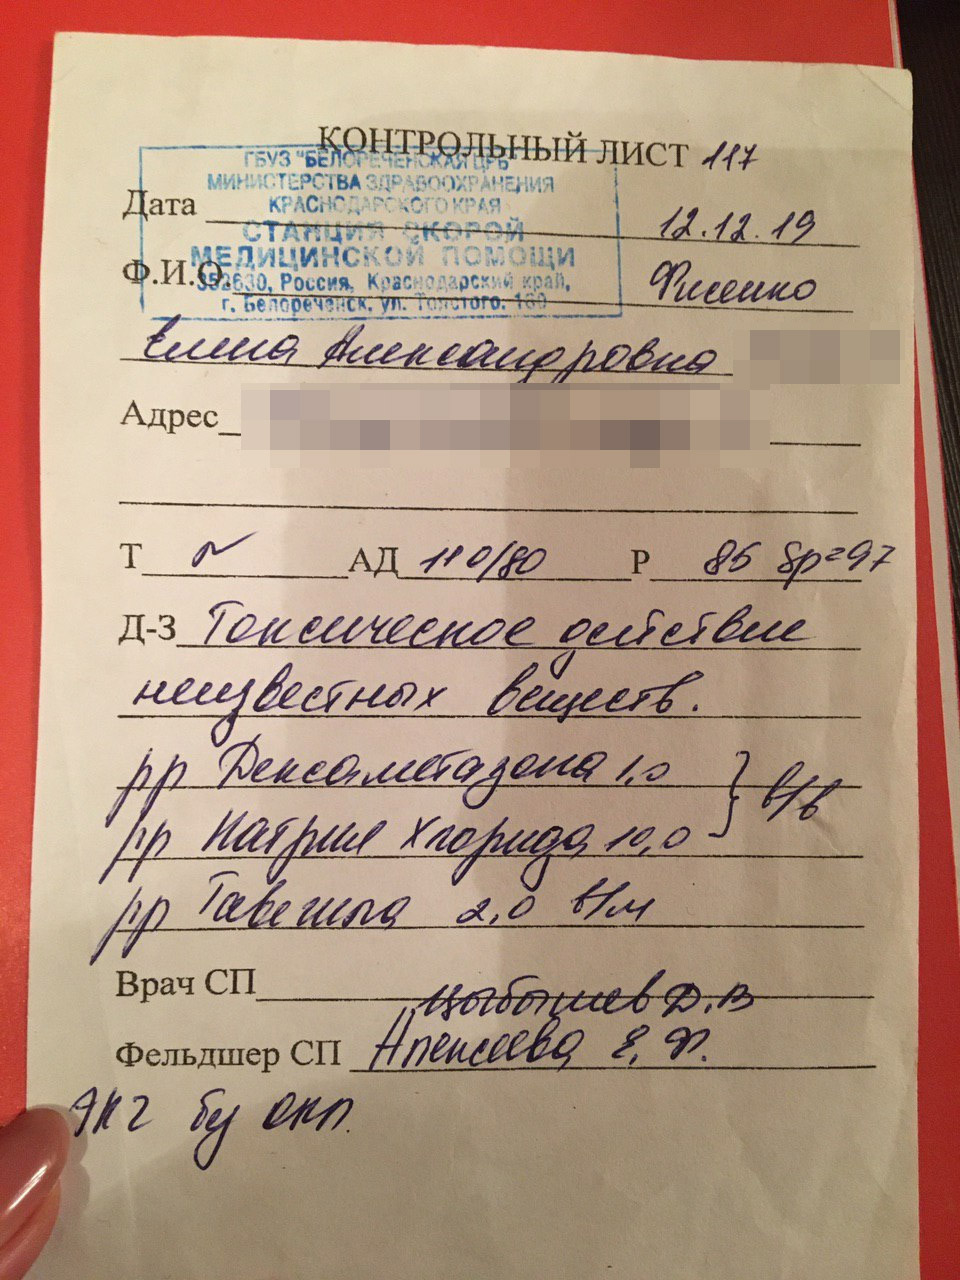 КОНТРОЛЬНЫЙ ЛИСТ 117
ГБУЗ "БЕЛОРЕЧЕНСКАЯ ЦРБ"
МИНИСТЕРСТВА ЗДРАВООХРАНЕНИЯ
КРАСНОДАРСКОГО КРАЯ
СТАНЦИЯ СКОРОЙ
МЕДИЦИНСКОЙ ПОМОЩИ
352630, Россия, Краснодарский край,
г. Белореченск, ул. Толстого, 160
Дата 12.12.19
Ф.И.О. Фисенко
Елена Александровна
Адрес
Т N АД 110/80 Р 85 Sp=97
Д-З Токсическое действие
неизвестных веществ.
рр Дексаметазона 1,0 } в/в
рр Натрия Хлорида 10,0
рр Тавегила 2,0 в/м
Врач СП Д.В
Фельдшер СП Алексеева Е.Ф.